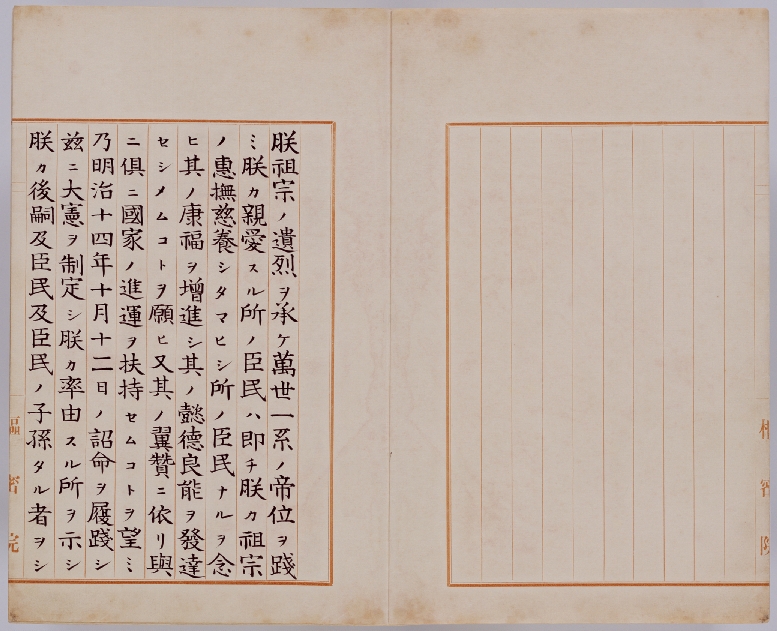 樞密院
朕祖宗ノ遺烈ヲ承ケ萬世一系ノ帝位ヲ踐
ミ朕カ親愛スル所ノ臣民ハ即チ朕カ祖宗
ノ惠撫慈養シタマヒシ所ノ臣民ナルヲ念
ヒ其ノ康福ヲ增進シ其ノ懿德良能ヲ發達
セシメムコトヲ願ヒ又其ノ翼贊ニ依リ與
ニ俱ニ國家ノ進運ヲ扶持セムコトヲ望ミ
乃明治十四年十月十二日ノ詔命ヲ履踐シ
玆ニ大憲ヲ制定シ朕カ率由スル所ヲ示シ
朕カ後嗣及臣民及臣民ノ子孫タル者ヲシ
樞密院